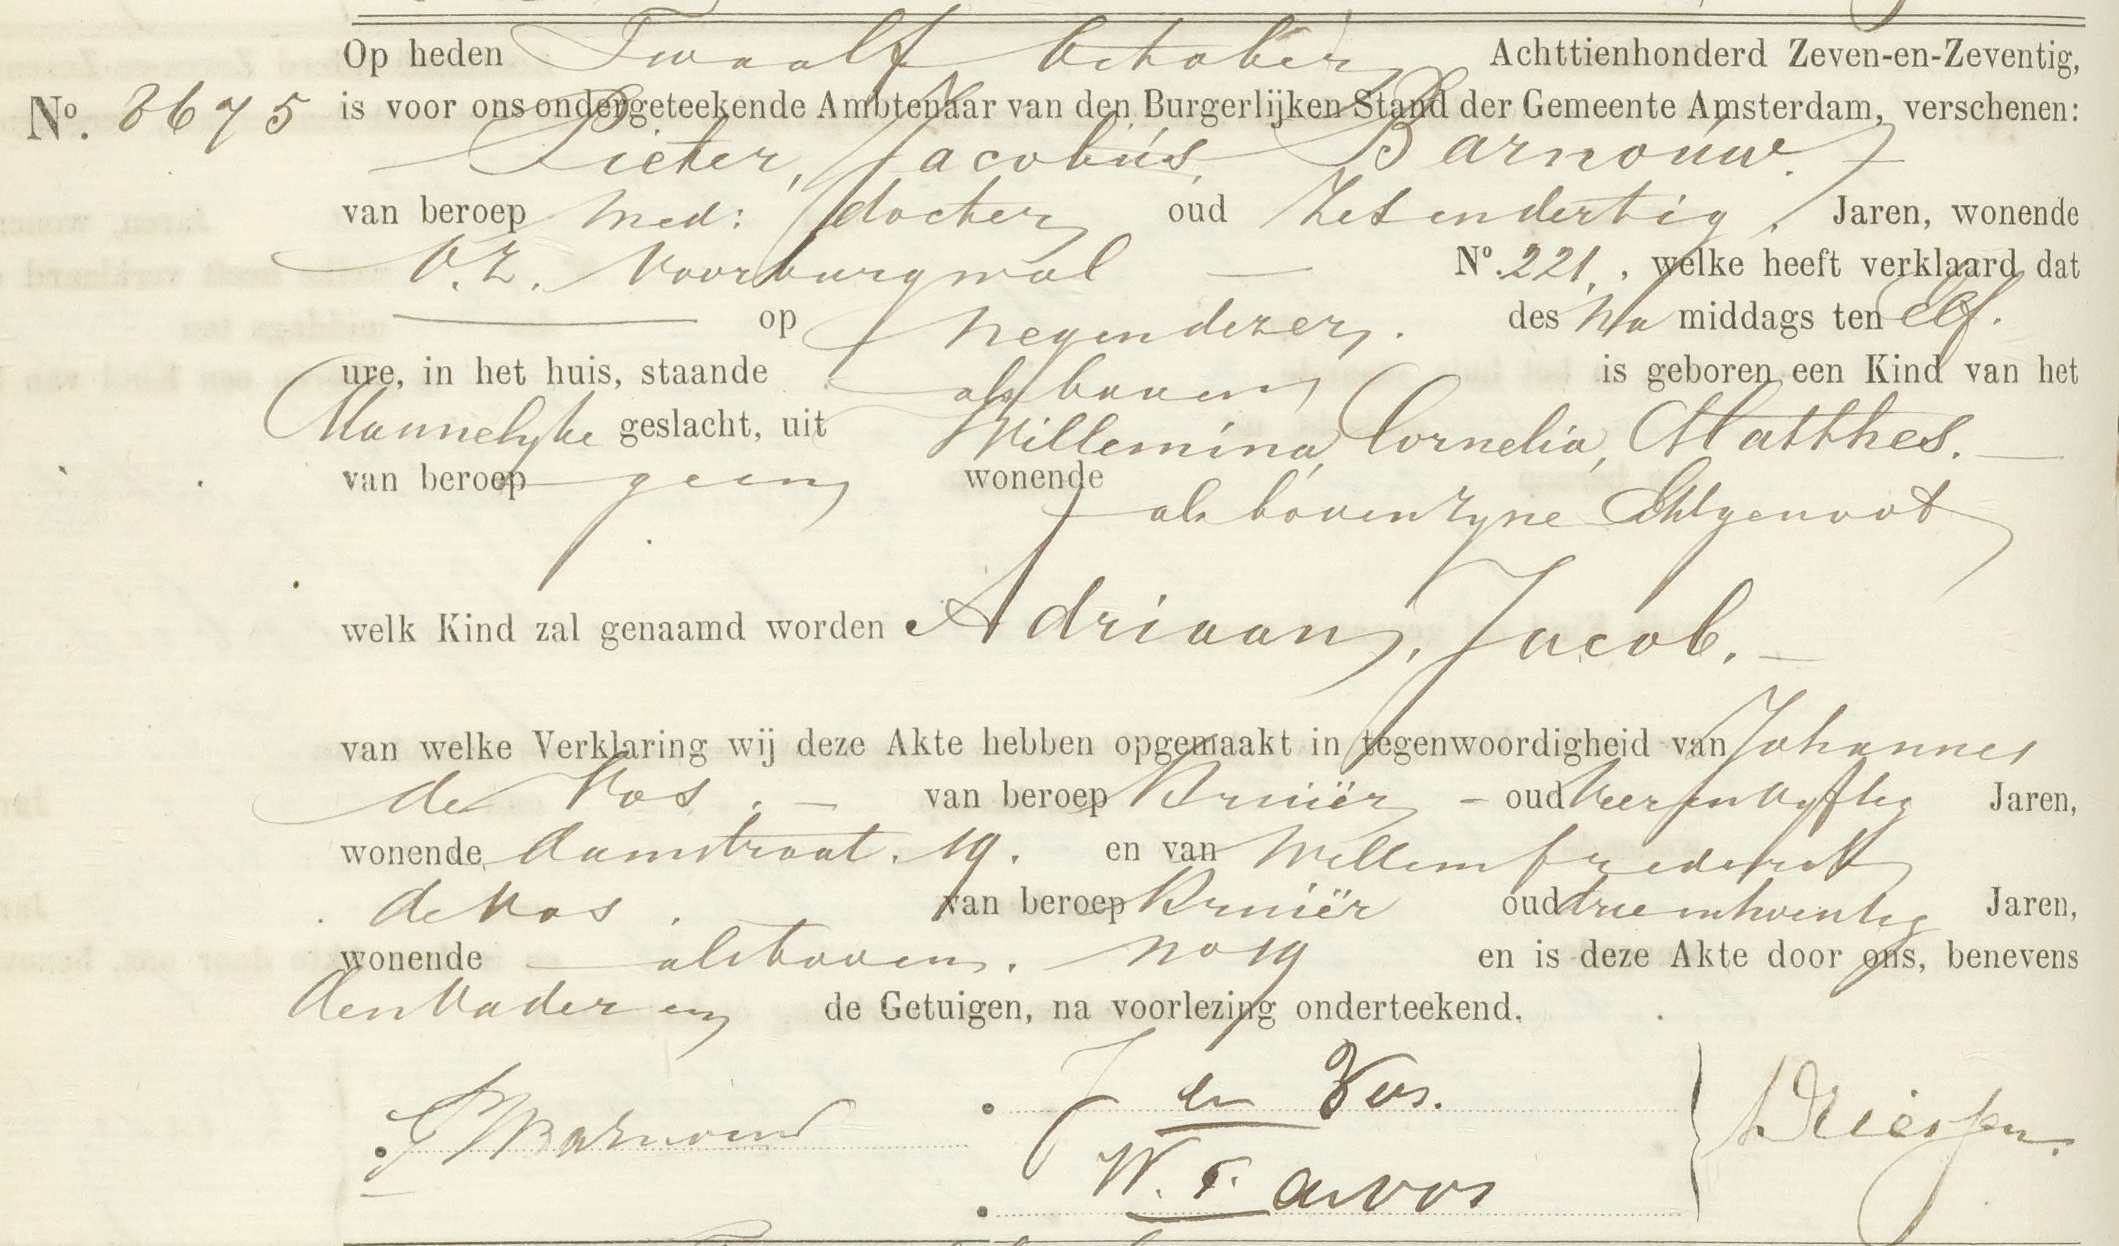 Op heden Twaalf October Achttienhonderd Zeven-en-Zeventig,
No. 8675 is voor ons ondergeteekende Ambtenaar van den Burgerlijken Stand der Gemeente Amsterdam, verschenen:
Pieter, Jacobus, Barnouw.
van beroep Med: docter oud Zesendertig, Jaren, wonende
O.Z. Voorburgwal No. 221, welke heeft verklaard dat
op Negendezer, des Na middags ten Elf.
ure, in het huis, staande als boven is geboren een Kind van het
Mannelyke geslacht, uit Willemina, Cornelia, Matthes.
van beroep geen wonende
als boven zyne Echtgenoot
welk Kind zal genaamd worden Adriaan, Jacob.
van welke Verklaring wij deze Akte hebben opgemaakt in tegenwoordigheid van Johannes
de Vos. van beroep Kruiër oud Vierenvyftig Jaren,
wonende Damstraat. 19. en van Willem Frederik
de Vos. van beroep Kruiër oud drieentwintig Jaren,
wonende als boven. No 19 en is deze Akte door ons, benevens
den Vader en de Getuigen, na voorlezing onderteekend.
PJBarnouw J de Vos.
W. F. de Vos